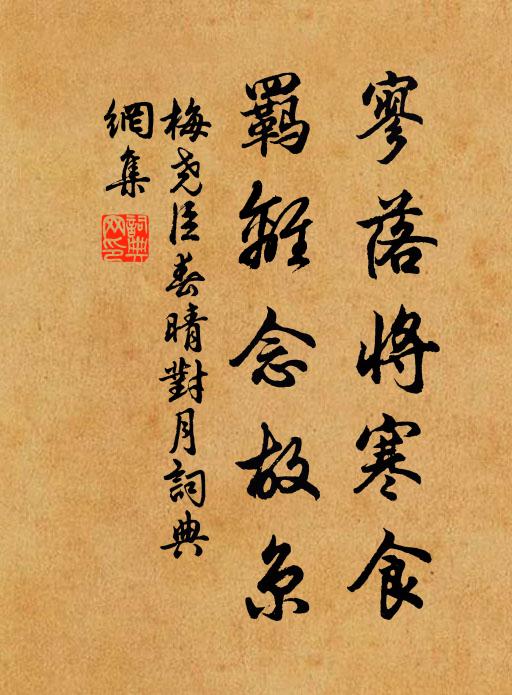 寥落將寒食
羈離念故京
梅堯臣春晴對月詞典
網集
詞典
网印